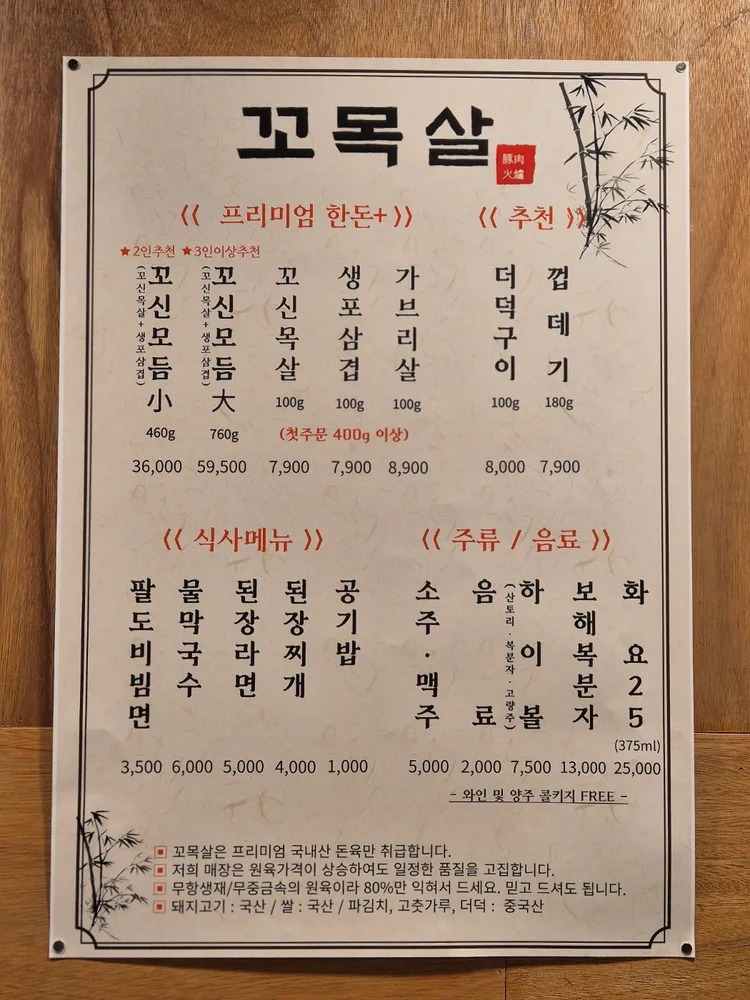 꼬목살
豚肉
火爐
《 프리미엄 한돈+》
★2인추천 ★3인이상추천
꼬신모듬小
(꼬신목살+생포삼겹)
460g
36,000
꼬신모듬大
(꼬신목살+생포삼겹)
760g
59,500
꼬신목살
100g
7,900
생포삼겹
100g
7,900
가브리살
100g
8,900
(첫주문 400g 이상)
《 추천 》
더덕구이
100g
8,000
껍데기
180g
7,900
《 식사메뉴 》
팔도비빔면
3,500
물막국수
6,000
된장라면
5,000
된장찌개
4,000
공기밥
1,000
《 주류 / 음료 》
소주·맥주
5,000
음료
2,000
하이볼
(산토리·복분자·고량주)
7,500
보해복분자
13,000
화요25
(375ml)
25,000
- 와인 및 양주 콜키지 FREE -
꼬목살은 프리미엄 국내산 돈육만 취급합니다.
저희 매장은 원육가격이 상승하여도 일정한 품질을 고집합니다.
무항생재/무중금속의 원육이라 80%만 익혀서 드세요. 믿고 드셔도 됩니다.
돼지고기 : 국산 / 쌀 : 국산 / 파김치, 고춧가루, 더덕 : 중국산